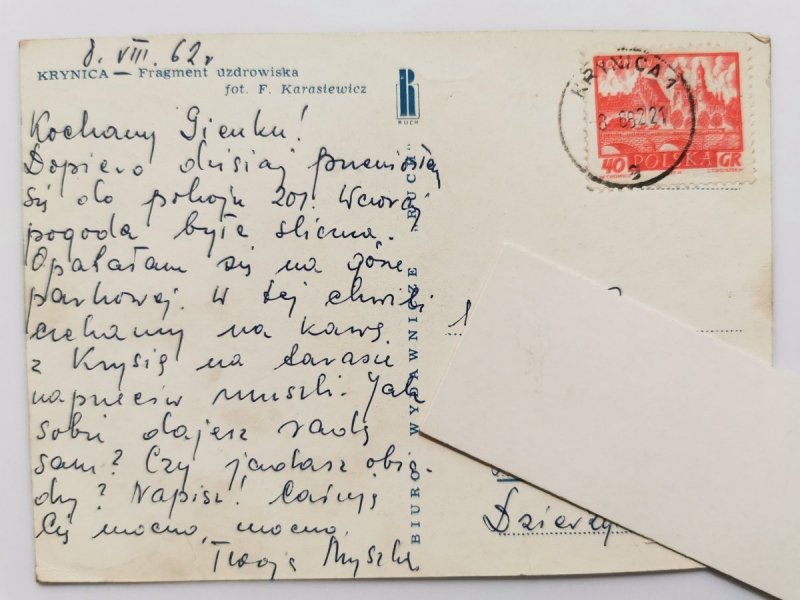 8. VIII. 62r
KRYNICA — Fragment uzdrowiska
fot. F. Karasiewicz
RUCH
Kochany Gienku!
Dopiero dzisiaj przeniosłaj
się do pokoju 201. Wczoraj
pogoda była śliczna.
Opalałam się na górze
parkowej. W tej chwili
czekamy na kawę
z Krysią na tarasie
naprzeciw muszli. Jak
sobie dajesz radę
sam? Czy jadasz obia-
dy? Napisz! Całuję
Cię mocno, mocno.
Twoja Myszka
BIURO WYDAWNICZE „RUCH"
KRYNICA 1
40 POLSKA GR
Dzierży